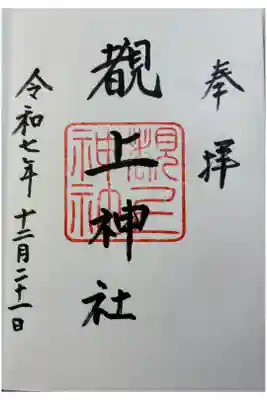 奉拝
覩上神社
令和七年 十二月二十一日